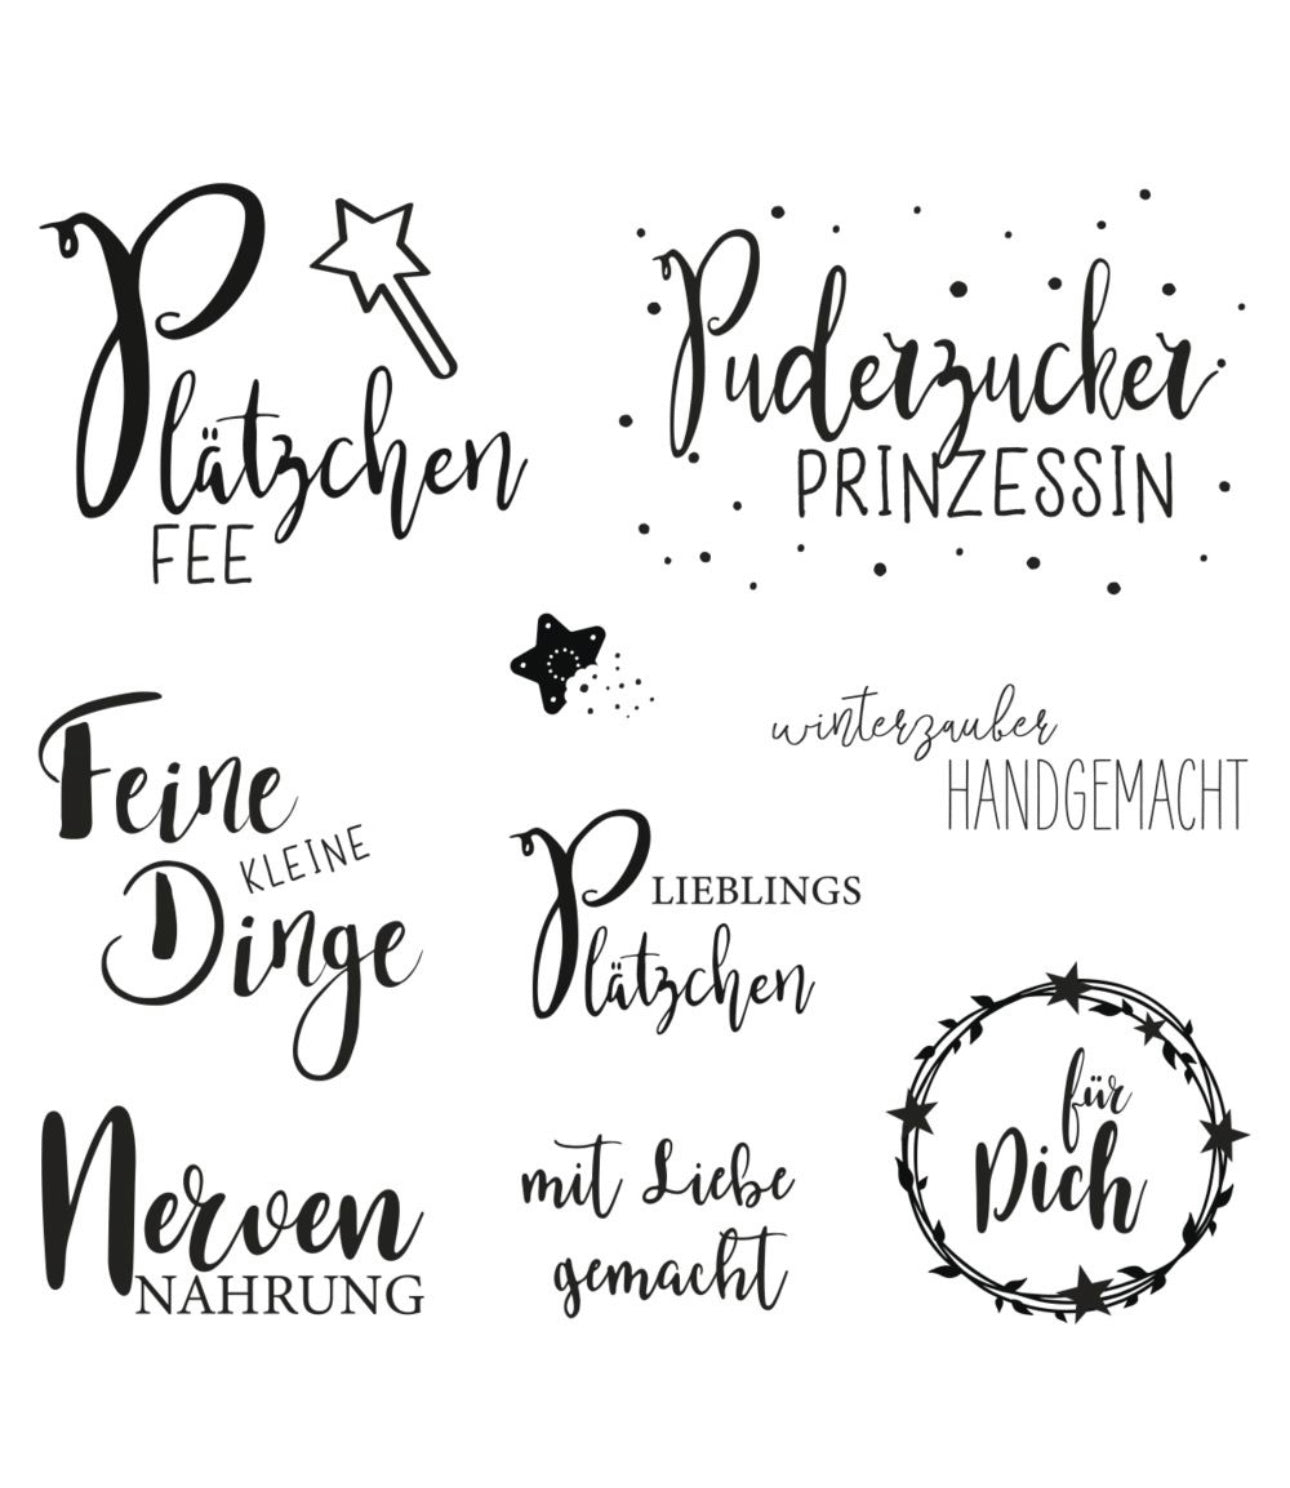 Plätzchen
FEE
Puderzucker
PRINZESSIN
Feine
KLEINE
Dinge
winterzauber
HANDGEMACHT
LIEBLINGS
Plätzchen
für
Dich
Nerven
NAHRUNG
mit Liebe
gemacht